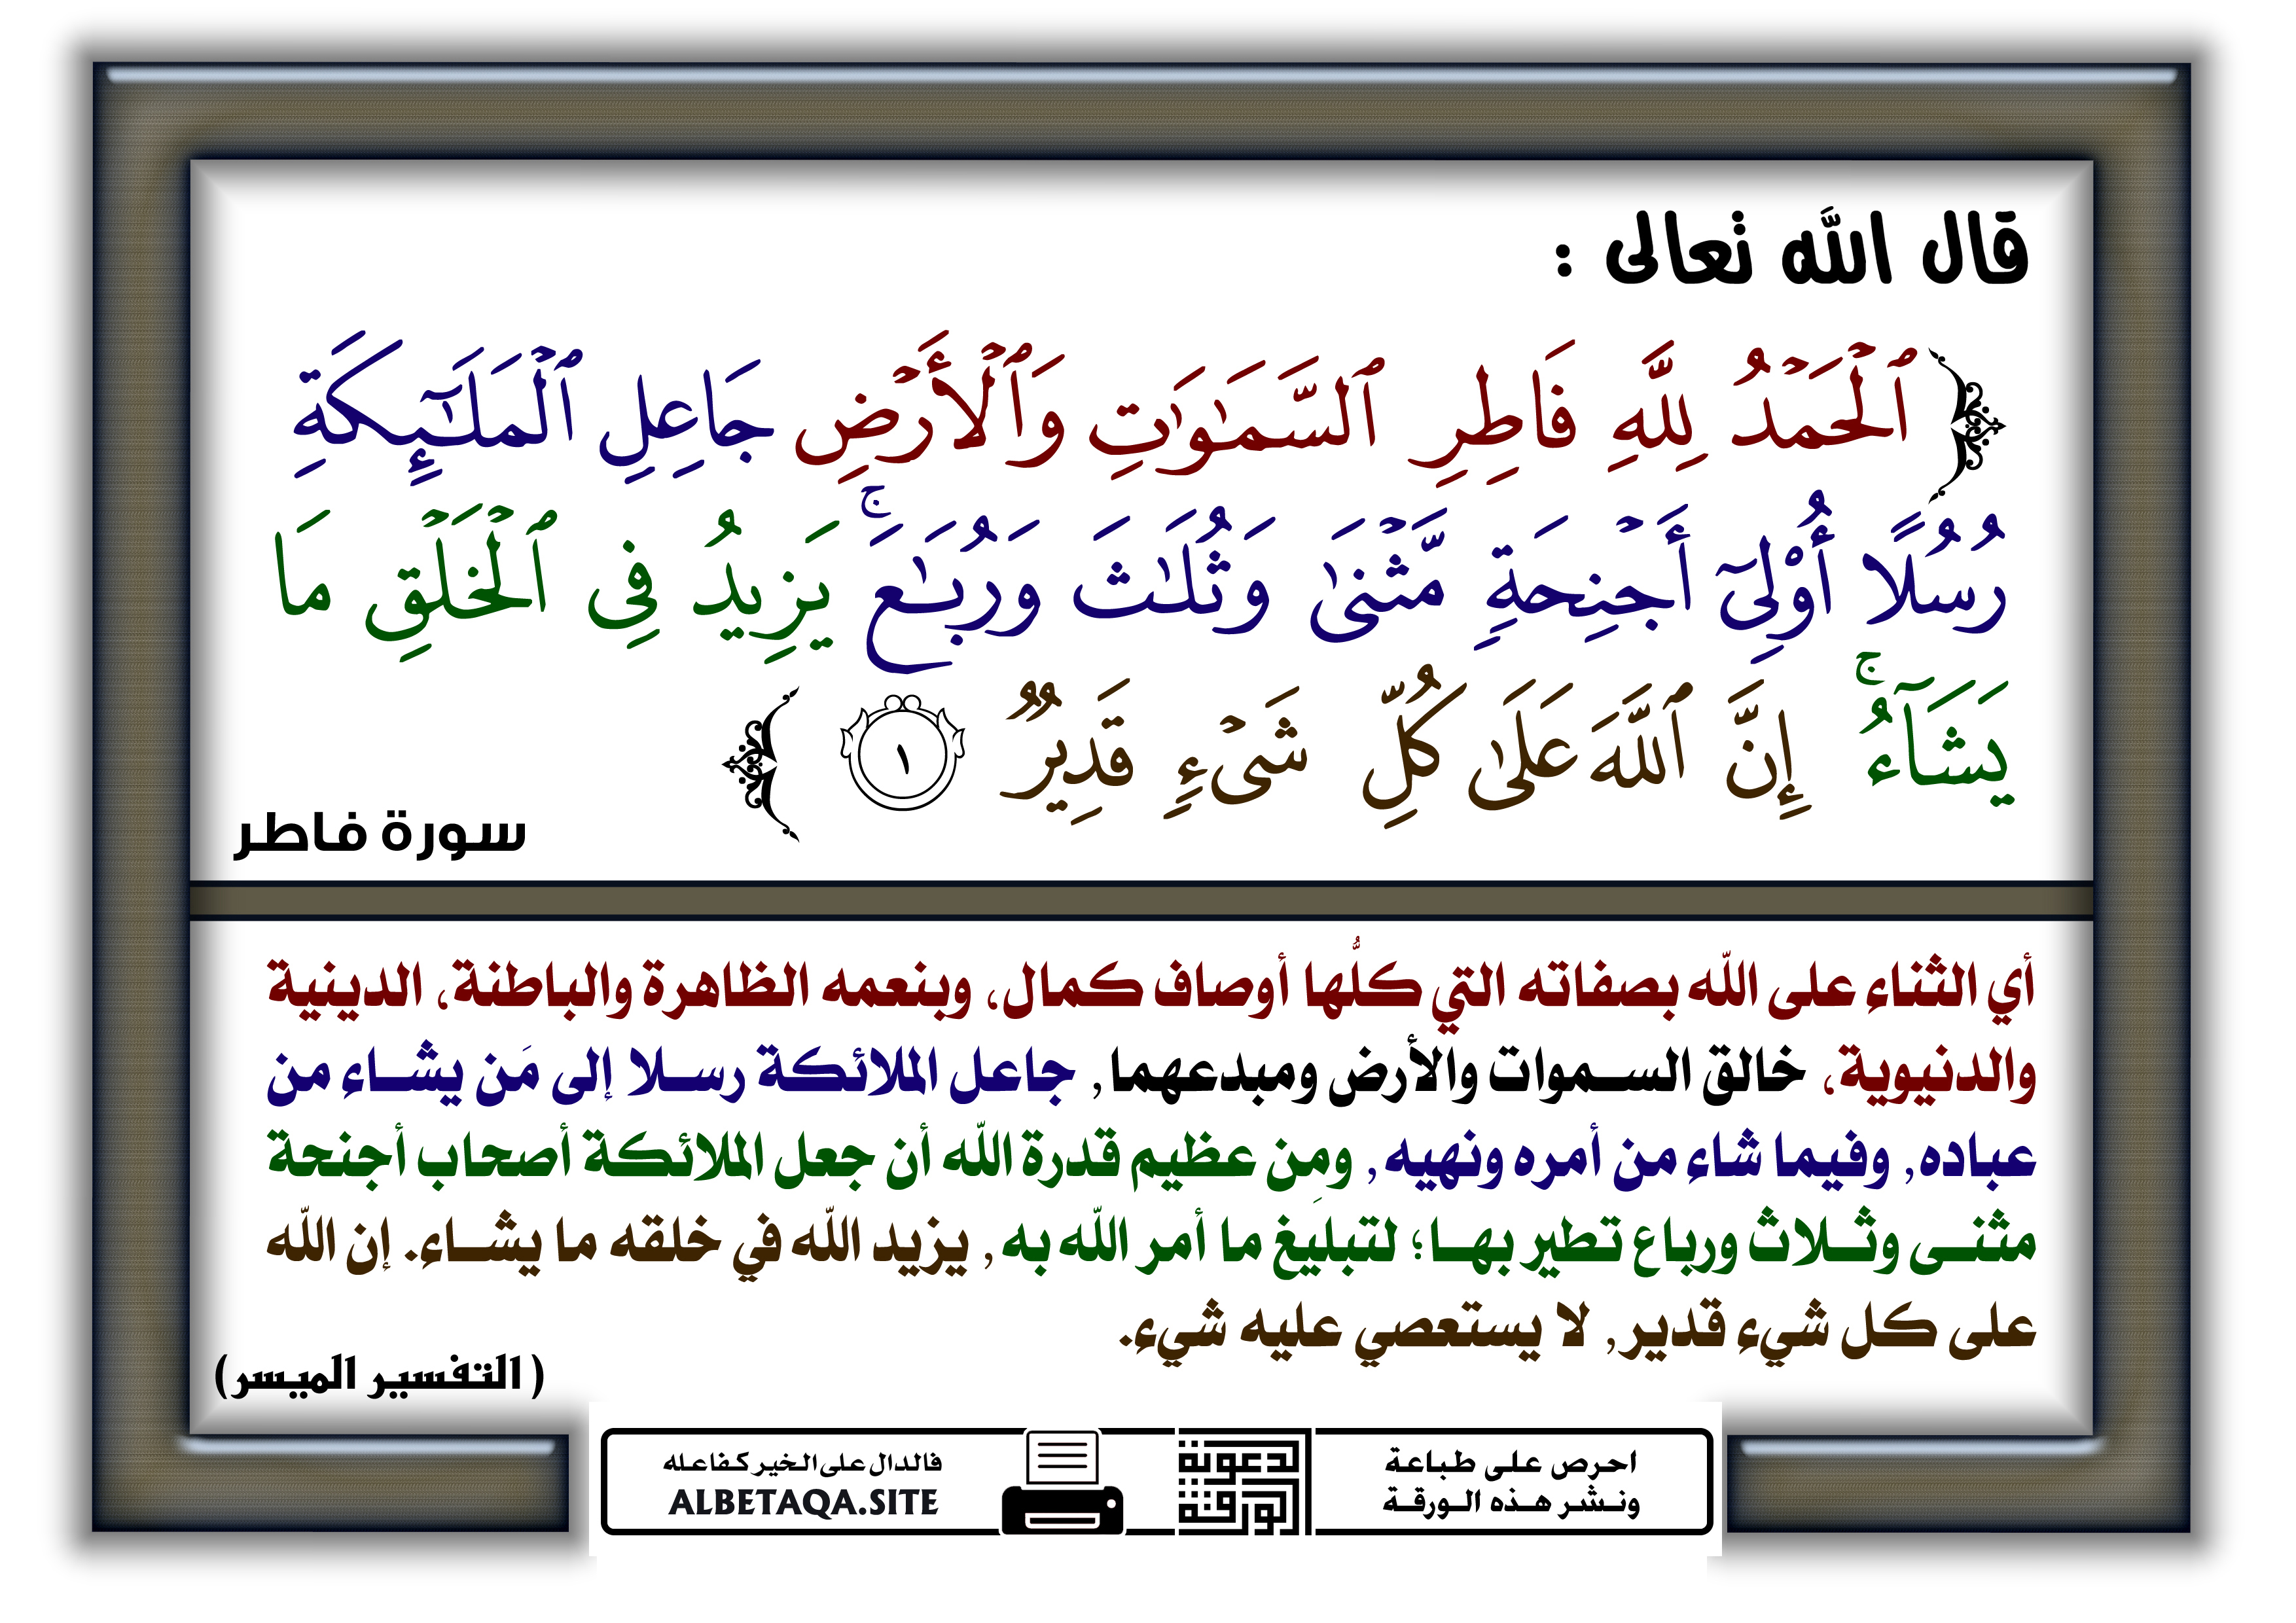 قال الله تعالى :
﴿ ٱلۡحَمۡدُ لِلَّهِ فَاطِرِ ٱلسَّمَٰوَٰتِ وَٱلۡأَرۡضِ جَاعِلِ ٱلۡمَلَٰٓئِكَةِ
رُسُلًا أُوْلِيٓ أَجۡنِحَةٖ مَّثۡنَىٰ وَثُلَٰثَ وَرُبَٰعَۚ يَزِيدُ فِي ٱلۡخَلۡقِ مَا
يَشَآءُۚ إِنَّ ٱللَّهَ عَلَىٰ كُلِّ شَيۡءٖ قَدِيرٞ ١ ﴾
سورة فاطر
أي الثناء على الله بصفاته التي كلُّها أوصاف كمال، وبنعمه الظاهرة والباطنة، الدينية
والدنيوية، خالق السموات والأرض ومبدعهما, جاعل الملائكة رسلا إلى مَن يشاء من
عباده, وفيما شاء من أمره ونهيه, ومِن عظيم قدرة الله أن جعل الملائكة أصحاب أجنحة
مثنى وثلاث ورباع تطير بها؛ لتبليغ ما أمر الله به, يزيد الله في خلقه ما يشاء. إن الله
على كل شيء قدير, لا يستعصي عليه شيء.
(التفسير الميسر)
احرص على طباعة
ونشر هذه الورقة
الورقة
الدعوية
فالدال على الخير كفاعله
ALBETAQA.SITE